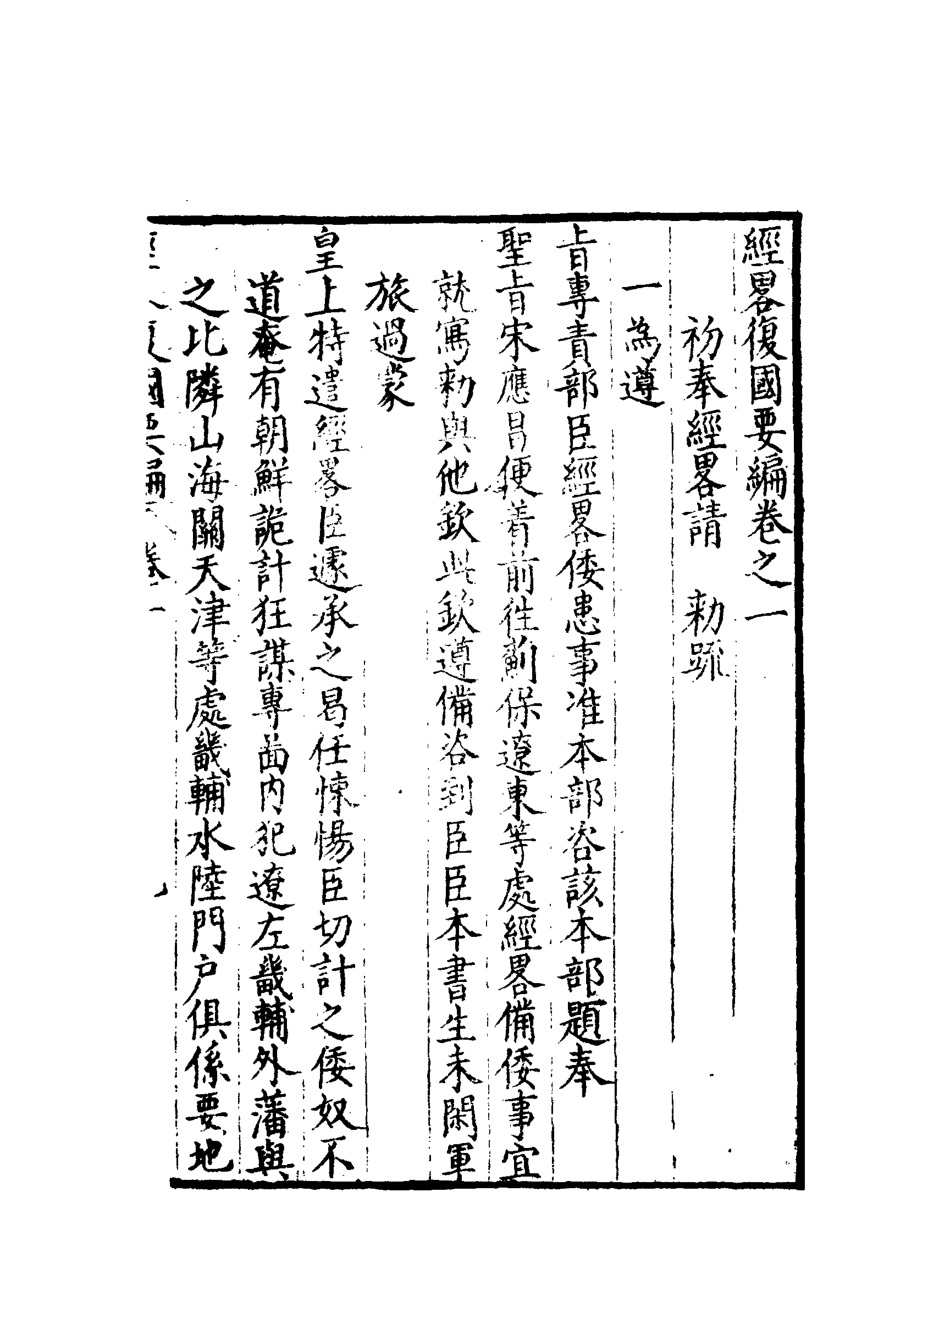 經畧復國要編卷之一
初奉經畧請　勑疏
一為遵
旨專責部臣經畧倭患事准本部咨該本部題奉
聖旨宋應昌便着前徃薊保遼東等處經畧備倭事宜
就寫勑與他欽此欽遵備咨到臣臣本書生未閑軍
旅過蒙
皇上特遣經畧臣遽承之曷任悚惕臣切計之倭奴不
道奄有朝鮮詭計狂謀專啚內犯遼左畿輔外藩與
之比隣山海關天津等處畿輔水陸門戶俱係要地